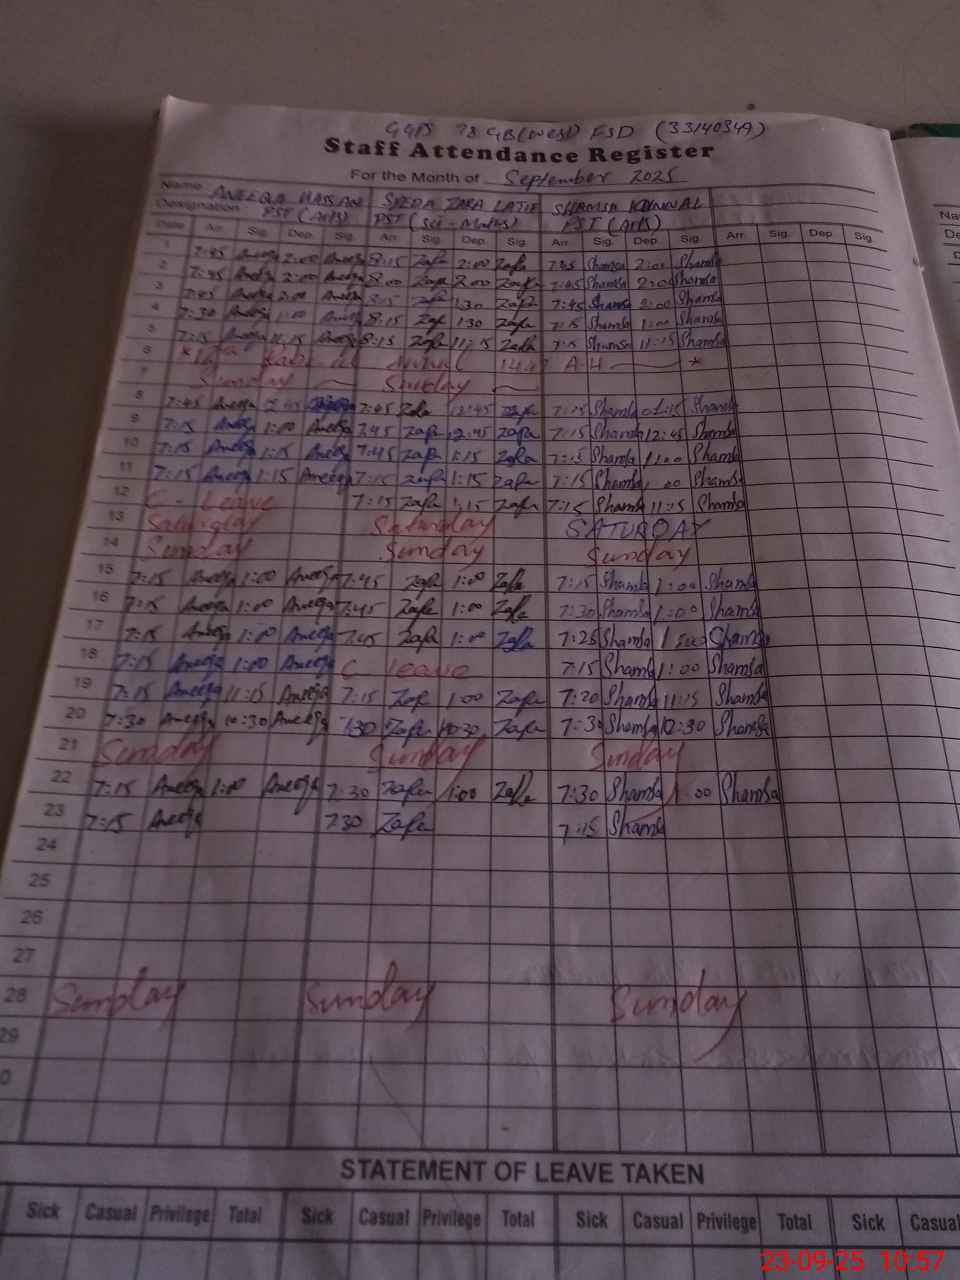 78 GB (West) FSD (33140349)
Staff Attendance Register
For the Month of September 2025
Name ANEEQA HASSAN SYEDA ZARA LATIF SHAMSA KANWAL Na
Designation PST (Arts) PST (Sci-Maths) PST (Arts) De
Date Arr. Sig. Dep. Sig. Arr. Sig. Dep. Sig. Arr. Sig. Dep. Sig. Arr. Sig. Dep. Sig.
7:45 Aneeqa 2:00 Aneeqa 8:15 Zara 2:00 Zara 7:45 Shamsa 2:00 Shamsa
2 7:45 Aneeqa 2:00 Aneeqa 8:00 Zara 2:00 Zara 7:45 Shamsa 2:00 Shamsa
3 7:45 Aneeqa 2:00 Aneeqa 8:15 Zara 1:30 Zara 7:45 Shamsa 2:00 Shamsa
4 7:30 Aneeqa 1:00 Aneeqa 8:15 Zara 1:30 Zara 7:15 Shamsa 1:00 Shamsa
5 7:15 Aneeqa 11:15 Aneeqa 8:15 Zara 11:15 Zara 7:15 Shamsa 11:15 Shamsa
6 AH
7 Sunday Sunday
8 7:45 Aneeqa 7:45 Zara 12:45 Zara 7:15 Shamsa Shamsa
9 7:15 Aneeqa 1:00 Aneeqa 7:45 Zara 12:45 Zara 7:15 Shamsa 12:45 Shamsa
10 7:15 Aneeqa 1:15 Aneeqa 7:45 Zara 1:15 Zara 7:15 Shamsa 1:00 Shamsa
11 7:15 Aneeqa 1:15 Aneeqa 7:15 Zara 1:15 Zara 7:15 Shamsa 1:00 Shamsa
12 C - Leave 7:15 Zara 1:15 Zara 7:15 Shamsa 11:15 Shamsa
13 Saturday Saturday SATURDAY
14 Sunday Sunday Sunday
15 7:15 Aneeqa 1:00 Aneeqa 7:45 Zara 1:00 Zara 7:15 Shamsa 1:00 Shamsa
16 7:15 Aneeqa 1:00 Aneeqa 7:45 Zara 1:00 Zara 7:30 Shamsa 1:00 Shamsa
17 7:15 Aneeqa 1:00 Aneeqa 7:45 Zara 1:00 Zara 7:25 Shamsa 1:00 Shamsa
18 7:15 Aneeqa 1:00 Aneeqa C leave 7:15 Shamsa 1:00 Shamsa
19 7:15 Aneeqa 11:15 Aneeqa 7:15 Zara 1:00 Zara 7:20 Shamsa 11:15 Shamsa
20 7:30 Aneeqa 10:30 Aneeqa 7:30 Zara 10:30 Zara 7:30 Shamsa Shamsa
21 Sunday Sunday Sunday
22 7:15 Aneeqa 1:00 Aneeqa 7:30 Zara 1:00 Zara 7:30 Shamsa 1:00 Shamsa
23 7:15 Aneeqa 7:30 Zara 7:15 Shamsa
24
25
26
27
28 Sunday Sunday Sunday
29
0
STATEMENT OF LEAVE TAKEN
Sick Casual Privilege Total Sick Casual Privilege Total Sick Casual Privilege Total Sick Casual
23-09-25 10:57